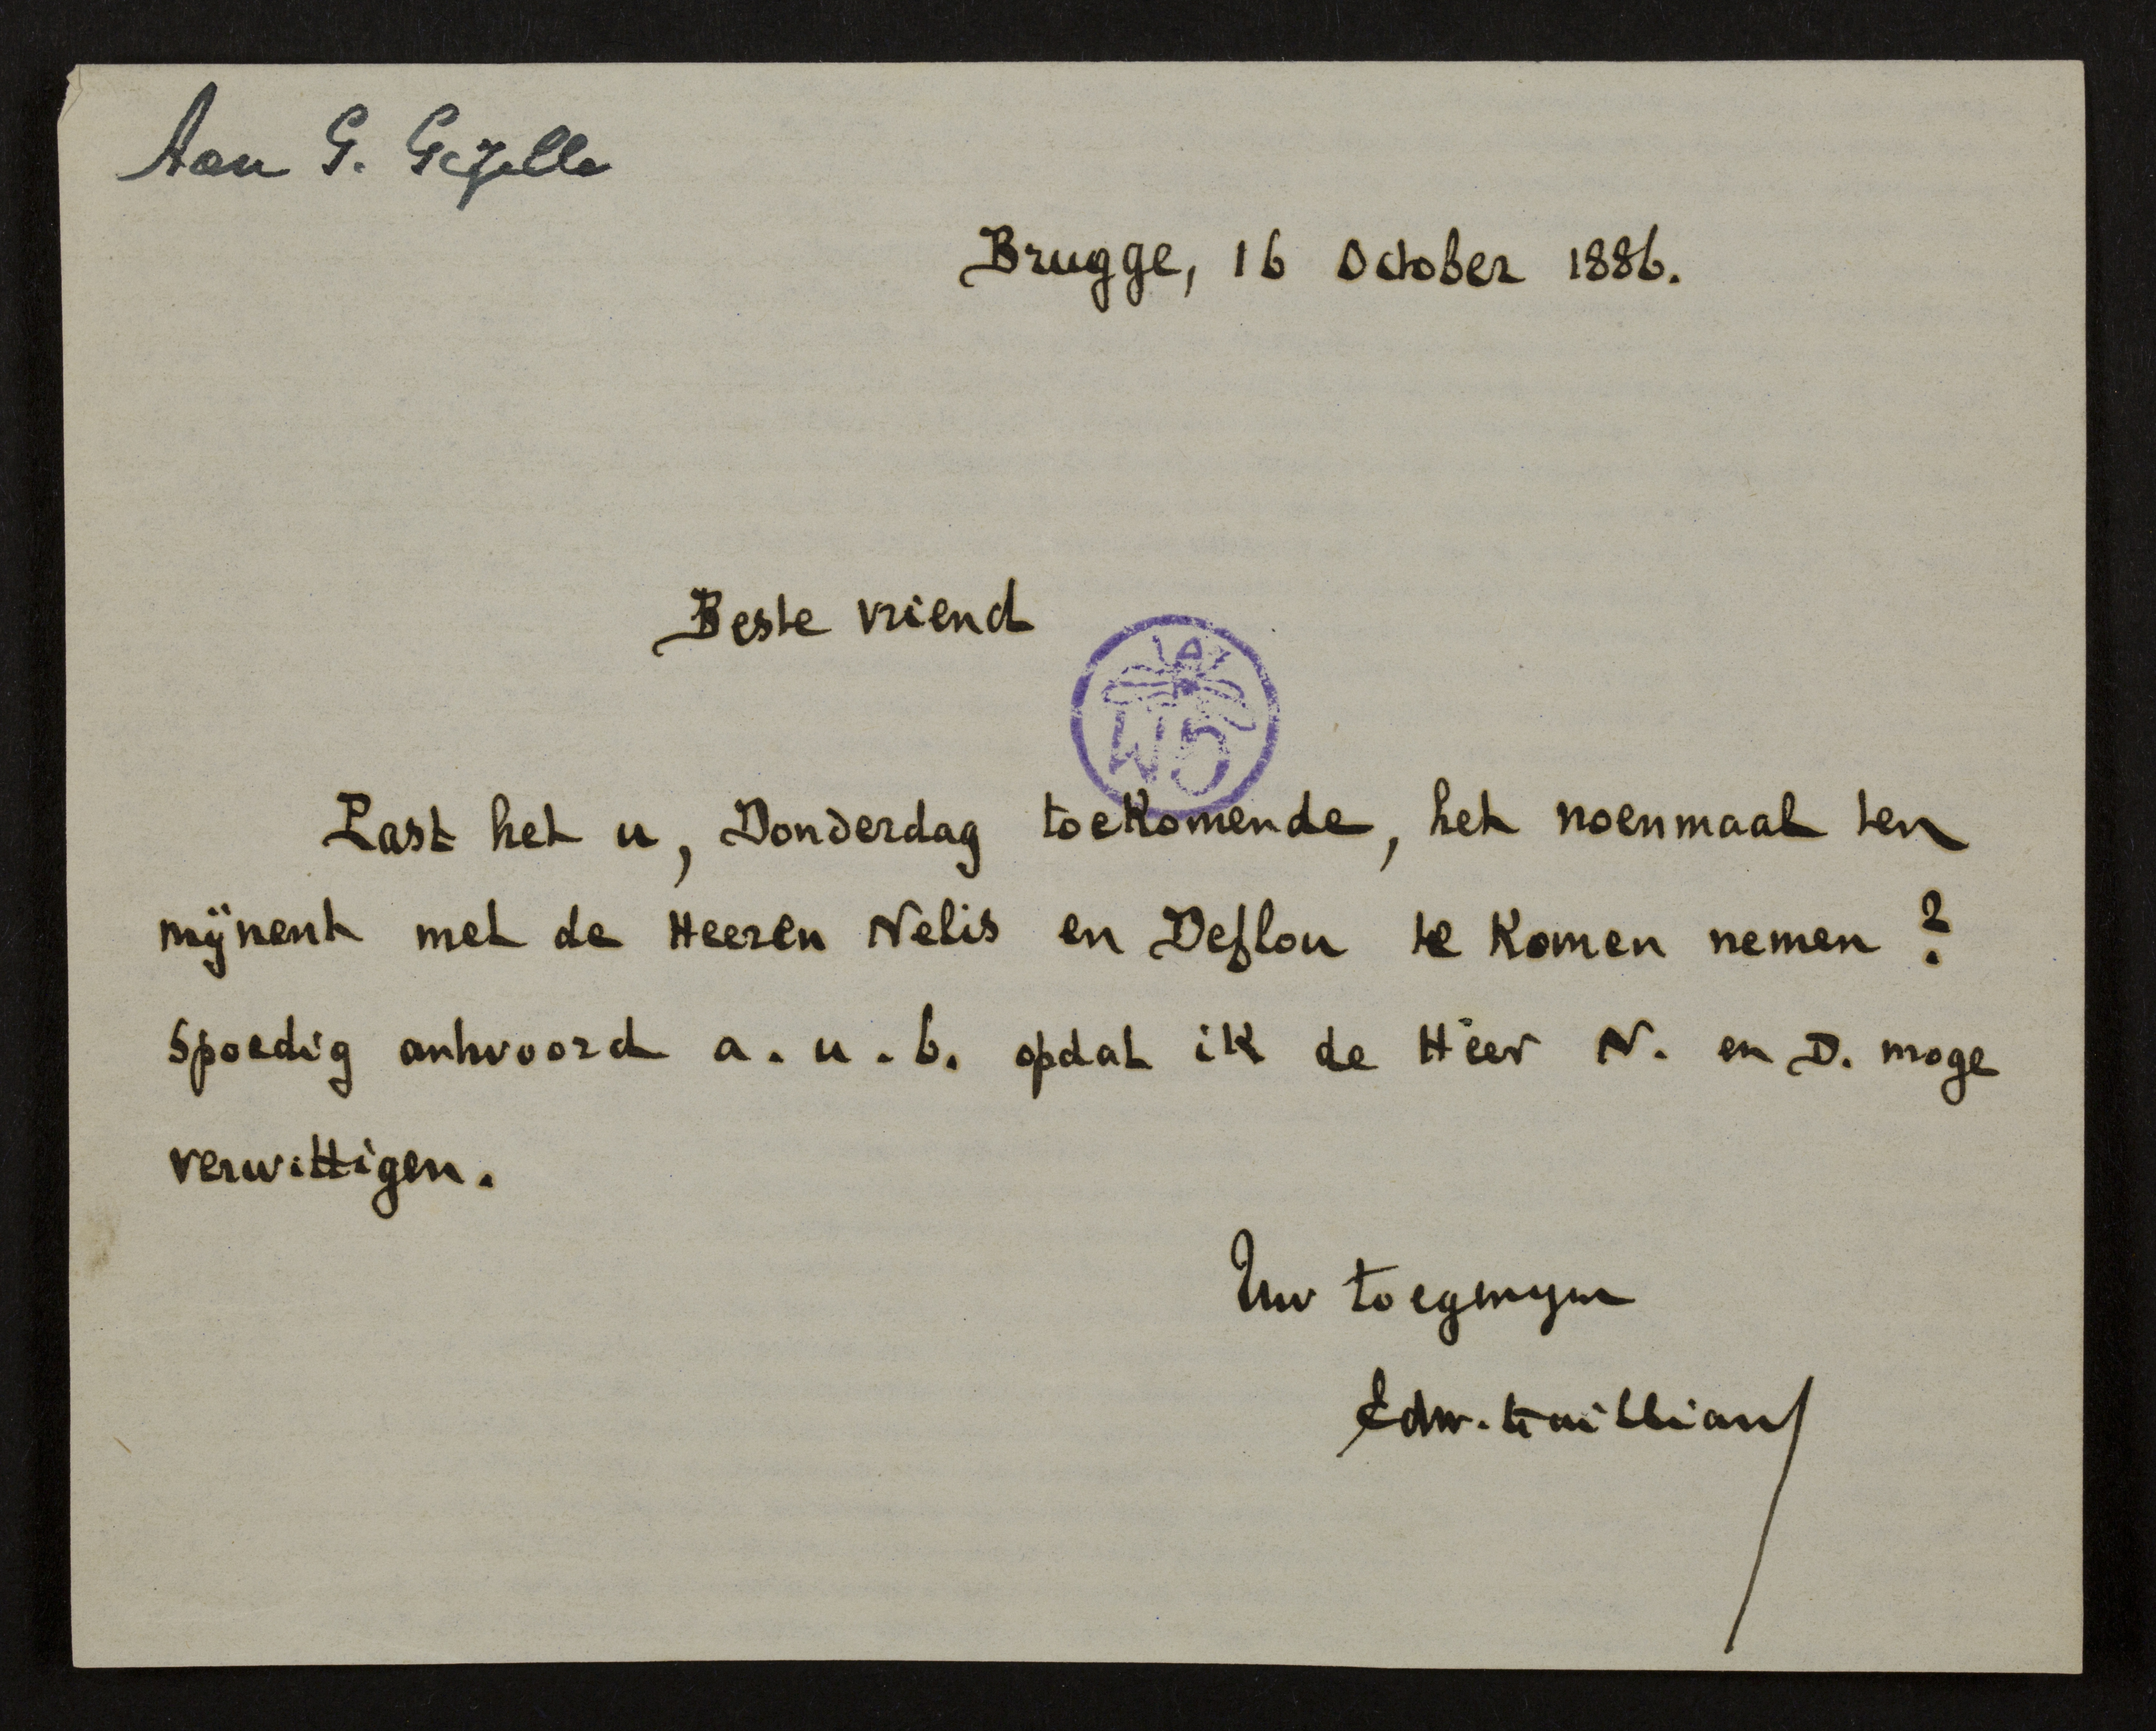 Aan G. Gezelle
Brugge, 16 October 1886.
Beste vriend
WD
Past het u, Donderdag toekomende, het noenmaal ten
mijnent met de Heeren Nelis en Deflou te komen nemen ?
Spoedig antwoord a. u. b. opdat ik de Heer N. en D. moge
verwittigen.
Uw toegenegen
Edw. Gailliard